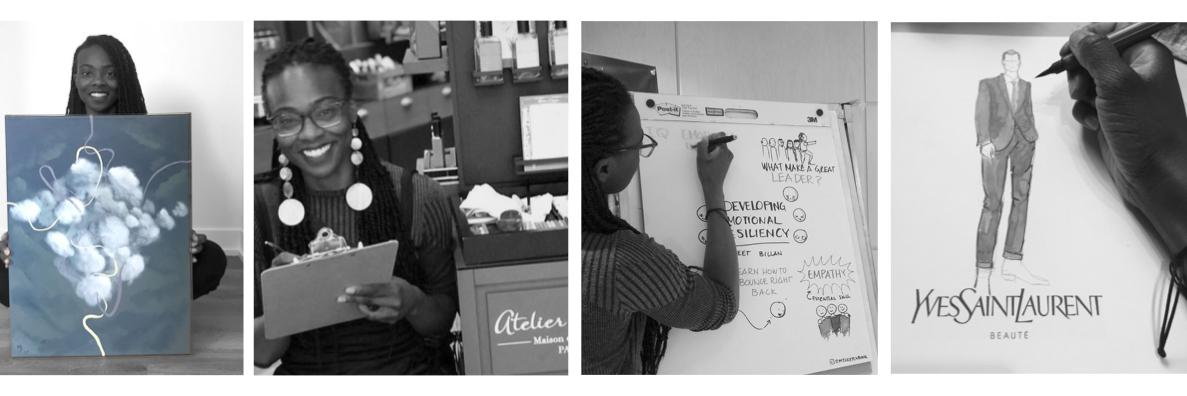 Atelier
Maison
PA
Post-it
3M
WHAT MAKE A GREAT
LEADER?
DEVELOPING
EMOTIONAL
RESILIENCY
BILLAN
LEARN HOW TO
BOUNCE RIGHT
BACK
EMPATHY
ESSENTIAL SKILL
YVESSAINTLAURENT
BEAUTÉ